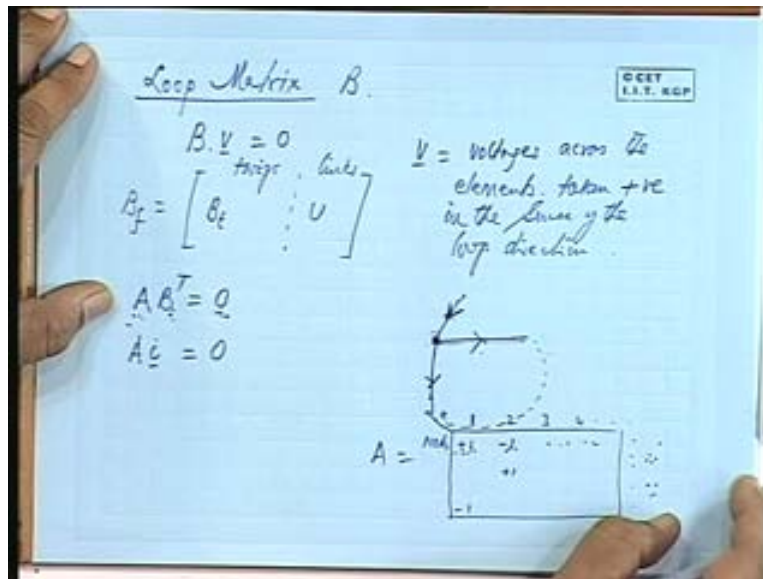 Loop Matrix B.
© CET
I.I.T. KGP
B.v = 0
twigs links
B_f = [ B_t ⋮ U ]
v = voltages across the
elements. taken +ve
in the sense of the
loop direction.
A B^T = 0
A i = 0
e 1 2 3 4 ....
A = Node +1 -1 .... ....
+1
-1